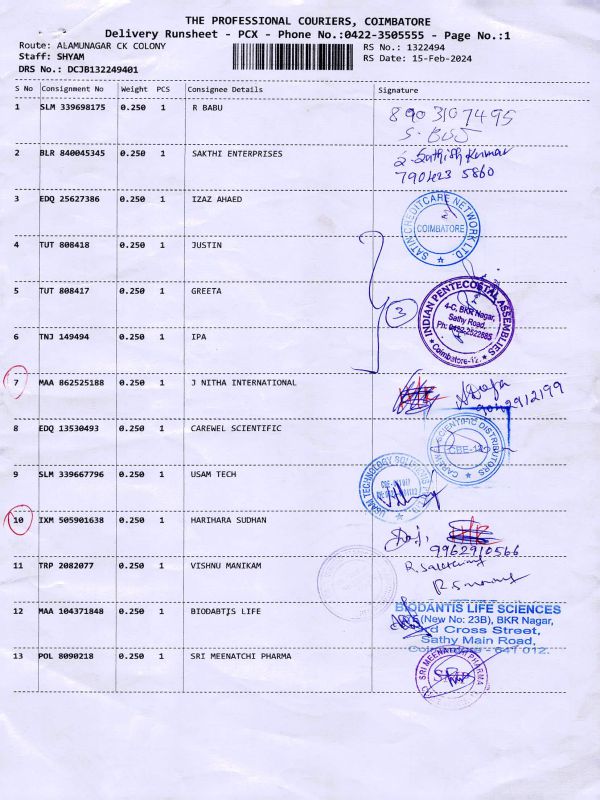 THE PROFESSIONAL COURIERS, COIMBATORE
Delivery Runsheet - PCX - Phone No.:0422-3505555 - Page No.:1
Route: ALAMUNAGAR CK COLONY
RS No.: 1322494
Staff: SHYAM
RS Date: 15-Feb-2024
DRS No.: DCJB132249401
S No Consignment No Weight PCS Consignee Details Signature
1 SLM 339698175 0.250 1 R BABU
8903107495
2 BLR 840045345 0.250 1 SAKTHI ENTERPRISES
Sathish Kumar
790423 5860
3 EDQ 25627386 0.250 1 IZAZ AHAED
SATIN CREDITCARE NETWORK LTD.
COIMBATORE
4 TUT 808418 0.250 1 JUSTIN
5 TUT 808417 0.250 1 GREETA
3
INDIAN PENTECOSTAL ASSEMBLIES
4-C, BKR Nagar,
Sathy Road,
Coimbatore-12.
6 TNJ 149494 0.250 1 IPA
7 MAA 862525188 0.250 1 J NITHA INTERNATIONAL
8 EDQ 13530493 0.250 1 CAREWEL SCIENTIFIC
CAREWEL SCIENTIFIC DISTRIBUTORS
9 SLM 339667796 0.250 1 USAM TECH
USAM TECHNOLOGY SOLUTIONS
10 IXM 505901638 0.250 1 HARIHARA SUDHAN
9962910566
11 TRP 2082077 0.250 1 VISHNU MANIKAM
12 MAA 104371848 0.250 1 BIODABTIS LIFE
BIODANTIS LIFE SCIENCES
(New No: 23B), BKR Nagar,
Cross Street,
Sathy Main Road,
Coimbatore - 641 012.
13 POL 8090218 0.250 1 SRI MEENATCHI PHARMA
SRI MEENATCHI PHARMA